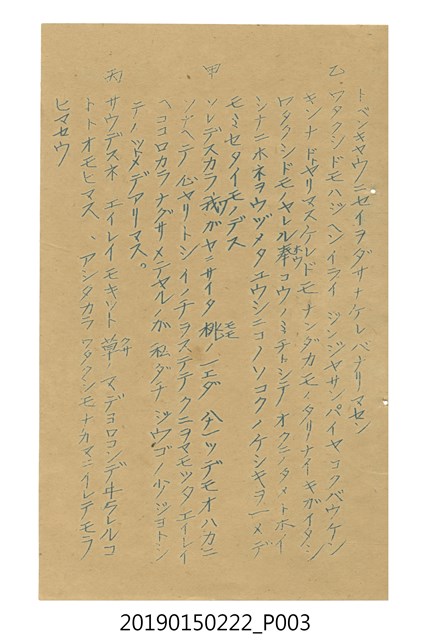 トベンキヤウニセイヲダサナケレバナリマセン
乙、ワタクシドモハジヘンイライ ジンジヤサンパイヤコクバウケン
キンナドヤリマスケレドモナンダカモノタリーナイキガイタシ
ワタクシドモノヤレル奉コウノミチトシテオクニノタメトホイ
シナニホネヲウヅメタユウシニコノソコクノケシキヲ一メデ
モミセタイモノデス
甲 ソレデスカラ我ガヤニサイタ桃ノ一エダ 一ツデモオハカニ
ソナヘテ 心ヤリトシ イノチヲステテクニヲマモツタエイレイ
ヘココロカラナグサメテヤルノガ 私タチ ジウゴノ少ノジヨトシ
テノツトメデアリマス。
丙 サウデスネ エイレイモキツト 草ノマデヨロコンデヰクレルコ
トトオモヒマス、アシタカラワタクシモナカマニイレテモラ
ヒマセウ
20190150222_P003